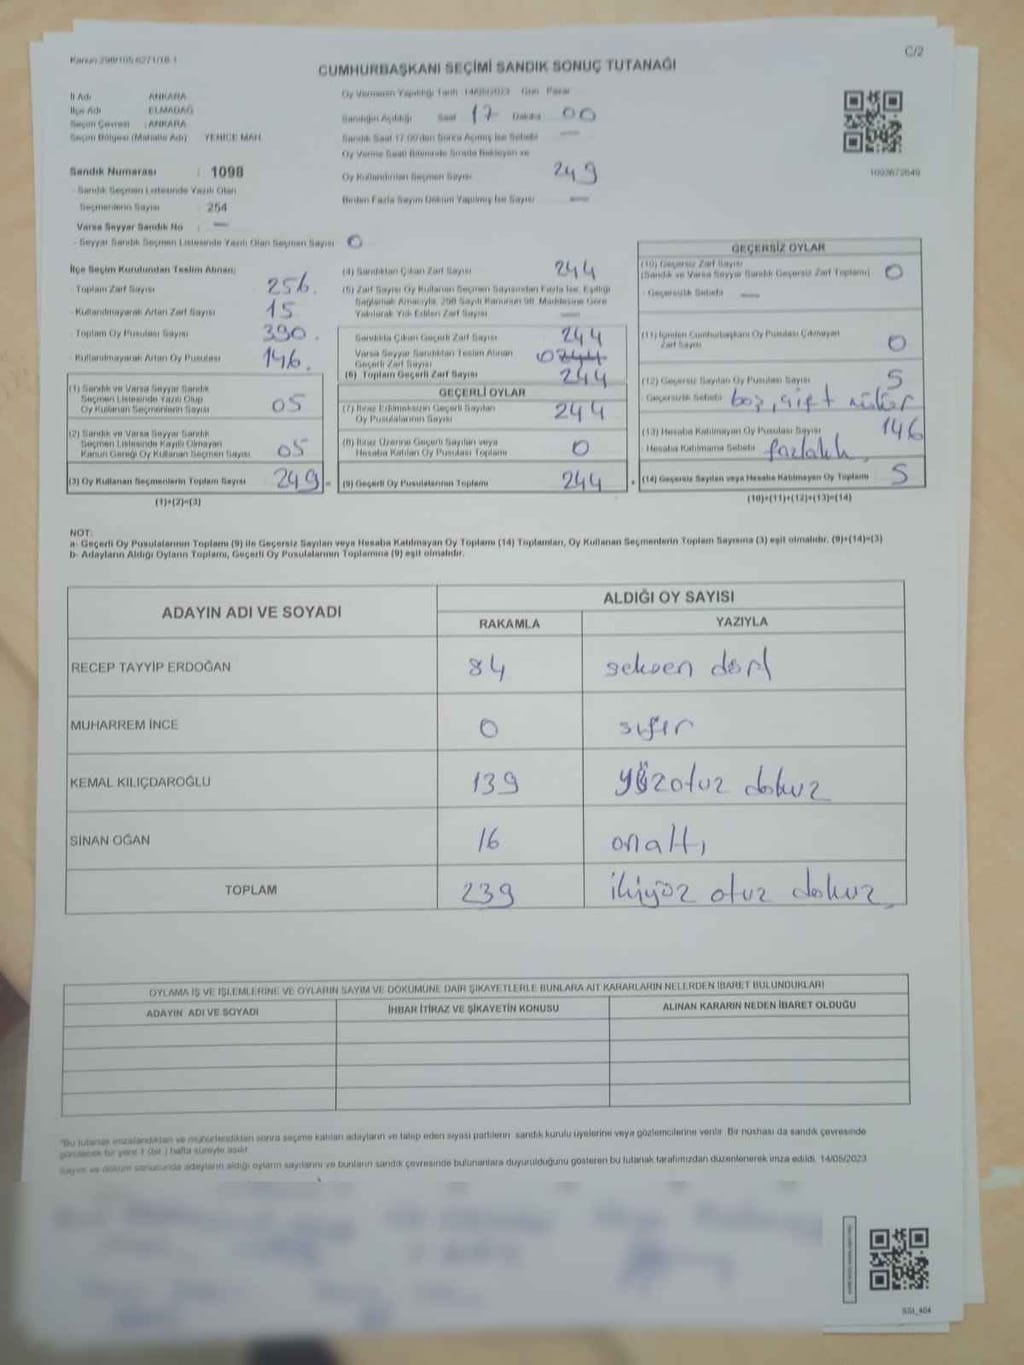 Kanun 298/105 6271/18.1
C/2
CUMHURBAŞKANI SEÇİMİ SANDIK SONUÇ TUTANAĞI
İl Adı ANKARA
İlçe Adı ELMADAĞ
Seçim Çevresi : ANKARA
Seçim Bölgesi (Mahalle Adı) YENİCE MAH.
Sandık Numarası : 1098
- Sandık Seçmen Listesinde Yazılı Olan
Seçmenlerin Sayısı : 254
Varsa Seyyar Sandık No : —
- Seyyar Sandık Seçmen Listesinde Yazılı Olan Seçmen Sayısı 0
Oy Vermenin Yapıldığı Tarih 14/05/2023 Gün Pazar
Sandığın Açıldığı Saat 17 Dakika 00
Sandık Saat 17.00'den Sonra Açılmış İse Sebebi —
Oy Verme Saati Bitiminde Sırada Bekleyen ve
Oy Kullandırılan Seçmen Sayısı 249
Birden Fazla Sayım Döküm Yapılmış İse Sayısı —
1093672649
İlçe Seçim Kurulundan Teslim Alınan;
- Toplam Zarf Sayısı 256.
- Kullanılmayarak Artan Zarf Sayısı 15
- Toplam Oy Pusulası Sayısı 390.
- Kullanılmayarak Artan Oy Pusulası 146.
(1) Sandık ve Varsa Seyyar Sandık
Seçmen Listesinde Yazılı Olup
Oy Kullanan Seçmenlerin Sayısı 05
(2) Sandık ve Varsa Seyyar Sandık
Seçmen Listesinde Kayıtlı Olmayan
Kanun Gereği Oy Kullanan Seçmen Sayısı 05
(3) Oy Kullanan Seçmenlerin Toplam Sayısı 249 =
(1)+(2)=(3)
(4) Sandıktan Çıkan Zarf Sayısı 244
(5) Zarf Sayısı Oy Kullanan Seçmen Sayısından Fazla İse, Eşitliği
Sağlamak Amacıyla, 298 Sayılı Kanunun 98. Maddesine Göre
Yakılarak Yok Edilen Zarf Sayısı —
Sandıkta Çıkan Geçerli Zarf Sayısı 244
Varsa Seyyar Sandıktan Teslim Alınan
Geçerli Zarf Sayısı 0 244
(6) Toplam Geçerli Zarf Sayısı 244
GEÇERLİ OYLAR
(7) İtiraz Edilmeksizin Geçerli Sayılan
Oy Pusulalarının Sayısı 244
(8) İtiraz Üzerine Geçerli Sayılan veya
Hesaba Katılan Oy Pusulası Toplamı 0
(9) Geçerli Oy Pusulalarının Toplamı 244 +
GEÇERSİZ OYLAR
(10) Geçersiz Zarf Sayısı
(Sandık ve Varsa Seyyar Sandık Geçersiz Zarf Toplamı) 0
- Geçersizlik Sebebi —
(11) İçinden Cumhurbaşkanı Oy Pusulası Çıkmayan
Zarf Sayısı 0
(12) Geçersiz Sayılan Oy Pusulası Sayısı 5
- Geçersizlik Sebebi boş, çift mühür
(13) Hesaba Katılmayan Oy Pusulası Sayısı 146
- Hesaba Katılmama Sebebi fazlalık
(14) Geçersiz Sayılan veya Hesaba Katılmayan Oy Toplamı 5
(10)+(11)+(12)+(13)=(14)
NOT:
a- Geçerli Oy Pusulalarının Toplamı (9) ile Geçersiz Sayılan veya Hesaba Katılmayan Oy Toplamı (14) Toplamları, Oy Kullanan Seçmenlerin Toplam Sayısına (3) eşit olmalıdır. (9)+(14)=(3)
b- Adayların Aldığı Oyların Toplamı, Geçerli Oy Pusulalarının Toplamına (9) eşit olmalıdır.
ADAYIN ADI VE SOYADI
ALDIĞI OY SAYISI
RAKAMLA YAZIYLA
RECEP TAYYİP ERDOĞAN 84 seksen dört
MUHARREM İNCE 0 sıfır
KEMAL KILIÇDAROĞLU 139 yüzotuz dokuz
SİNAN OĞAN 16 onaltı
TOPLAM 239 ikiyüz otuz dokuz
OYLAMA İŞ VE İŞLEMLERİNE VE OYLARIN SAYIM VE DÖKÜMÜNE DAİR ŞİKAYETLERLE BUNLARA AİT KARARLARIN NELERDEN İBARET BULUNDUKLARI
ADAYIN ADI VE SOYADI İHBAR İTİRAZ VE ŞİKAYETİN KONUSU ALINAN KARARIN NEDEN İBARET OLDUĞU
*Bu tutanak imzalandıktan ve mühürlendikten sonra seçime katılan adayların ve talep eden siyasi partilerin sandık kurulu üyelerine veya gözlemcilerine verilir. Bir nüshası da sandık çevresinde
görülecek bir yere 1 (bir) hafta süreyle asılır.
Sayım ve döküm sonucunda adayların aldığı oyların sayılarını ve bunların sandık çevresinde bulunanlara duyurulduğunu gösteren bu tutanak tarafımızdan düzenlenerek imza edildi. 14/05/2023